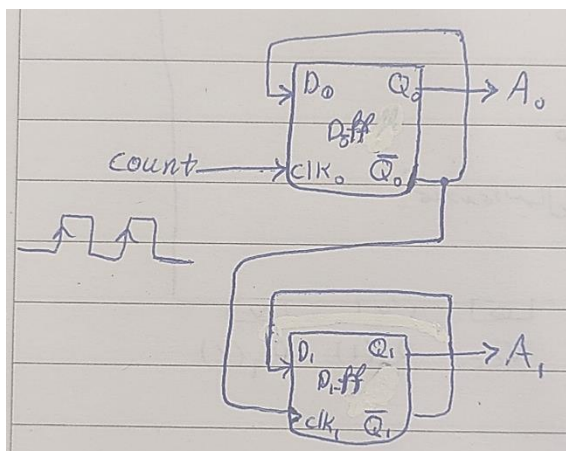 D₀ Q₀ A₀
D₀ff
count clk₀ Q̅₀
D₁ Q₁ A₁
D₁ff
clk₁ Q̅₁